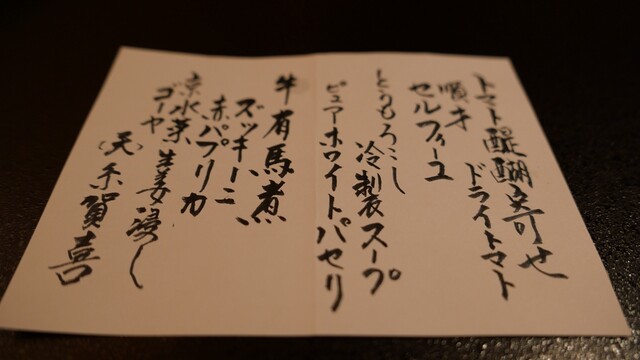 トマト醍醐寄せ
順才 ドライトマト
セルフィーユ
とうもろこし
冷製スープ
ピュアホワイト パセリ
牛有馬煮
ズッキーニ、
赤パプリカ
京水茄 生姜浸し
ゴーヤ
糸賀喜